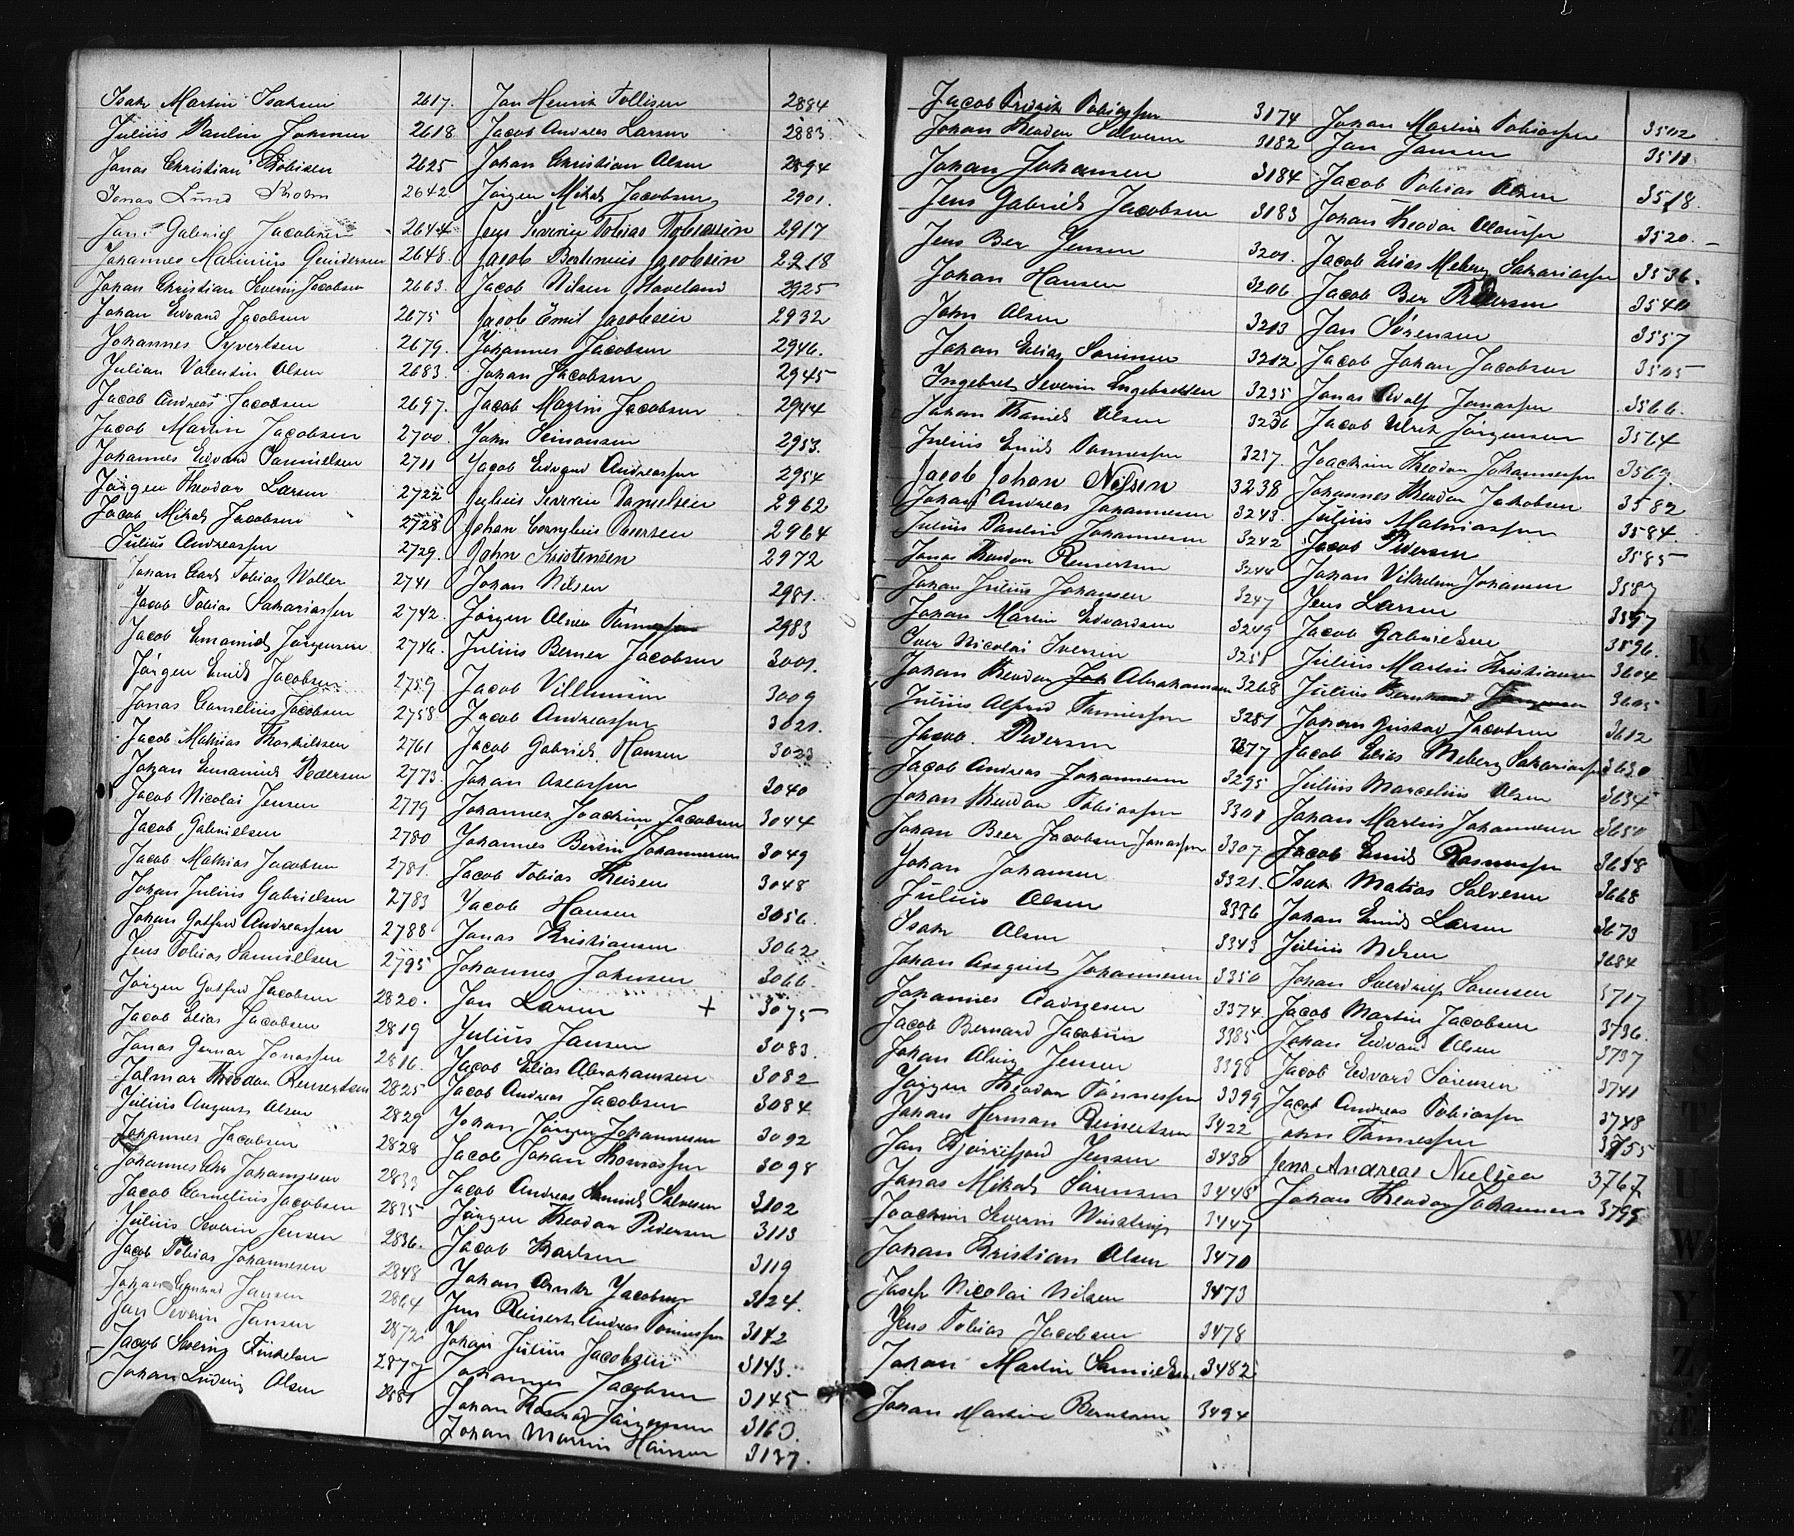 Isak Martin Isaksen 2617.
Julius Paulin Johansen 2618
Jonas Christian Tobisen 2625
Jonas Lund Holm 2642
Jens Gabriel Jacobsen 2644
Johannes Marinius Gundersen 2648.
Johan Christian Severin Jacobsen 2663.
Johan Edvard Jacobsen 2675
Johannes Syvertsen 2679.
Julian Valentin Olsen 2683.
Jacob Andreas Jacobsen 2697.
Jacob Martin Jacobsen 2700.
Johannes Edvard Samuelsen 2711
Jörgen Theodor Larsen 2722
Jacob Mikal Jacobsen 2728
Julius Andreassen 2729.
Johan Carl Tobias Woller 2741
Jacob Tobias Sakariassen 2742.
Jacob Emanuel Jörgensen 2746.
Jörgen Emil Jacobsen 2759
Jonas Cornelius Jacobsen 2758
Jacob Mathias Thorkildsen 2761
Johan Emanuel Pedersen 2773.
Jacob Nicolai Jensen 2779
Jacob Gabrielsen 2780
Jacob Mathias Jacobsen 2781.
Johan Julius Gabrielsen 2783
Johan Gotfred Andreassen 2788
Jens Tobias Samuelsen 2795
Jörgen Gotfred Jacobsen 2820.
Jacob Elias Jacobsen 2819
Jonas Gunnar Jonassen 2816.
Jalmar Theodor Reinertsen 2825
Julius August Olsen 2829
Johannes Jacobsen 2828
Johannes Chr Johannesen 2833
Jacob Cornelius Jacobsen 2835
Julius Severin Jensen 2836.
Jacob Tobias Johannesen 2848
Johan Sigurd Jansen 2864
Jan Severin Jansen 2872
Jacob Severin Finkelsen 2877
Johan Ludvig Olsen 2881
Jan Henrik Tollisen 2884
Jacob Andreas Larsen 2883
Johan Christian Olsen 2894
Jörgen Mikal Jacobsen 2901.
Jens Severin Tobias Tobiassen 2917
Jacob Bertinius Jacobsen 2918
Jacob Nilsen Haveland 2925
Jacob Emil Jacobsen 2932
Johannes Jacobsen 2946.
Johan Jacobsen 2945
Jacob Martin Jacobsen 2944
John Simonsen 2953.
Jacob Edvard Andreassen 2954
Julius Severin Danielsen 2962
Johan Cornelius Iversen 2964
John Kristensen 2972
Johan Nilsen 2981.
Jörgen Olsen Tönnessen 2983
Julius Berner Jacobsen 3001.
Jacob Villumsen 3009
Jacob Andreassen 3021.
Jacob Gabriel Hansen 3023
Johan Aseassen 3040
Johannes Joachim Jacobsen 3044
Johannes Bertin Johannesen 3049
Jacob Tobias Theisen 3048
Jacob Hansen 3056.
Jonas Kristiansen 3062
Johannes Johnsen 3066.
Jan Larsen + 3075
Julius Jansen 3083.
Jacob Elias Abrahamsen 3082
Jacob Andreas Jacobsen 3084
Johan Jörgen Johannesen 3092
Jacob Johan Thomassen 3098
Jacob Andreas Samuel Salvesen 3102
Jörgen Theodor Pedersen 3113
Jacob Karlsen 3119
Johan Arnt Jacobsen 3124.
Jens Reinert Andreas Tönnessen 3142
Johan Julius Jacobsen 3143.
Johannes Jacobsen 3145
Johan Konrad Jörgensen 3160.
Johan Martin Hansen 3137.
Jacob Fredrik Tobiassen 3174
Johan Theodor Salvesen 3182
Johan Johansen 3184
Jens Gabriel Jacobsen 3183
Jens Ber Jensen 3201.
Johan Hansen 3206
John Olsen 3213
Johan Elias Sörensen 3212
Ingebret Severin Ingebretsen 3235
Johan Daniel Olsen 3236
Julius Emil Tönnessen 3237.
Jacob Johan Nilsen 3238
Johan Andreas Johannesen 3243.
Julius Paulin Johannesen 3242
Jonas Theodor Reinertsen 3244
Johan Julius Johansen 3247
Johan Martin Edvardsen 3249
Iver Nicolai Iversen 3251
Johan Theodor Joh Abrahamsen 3268
Julius Alfred Tönnessen 3281
Jacob Pedersen 3277
Jacob Andreas Johannesen 3295
Johan Theodor Tobiassen 3301
Johan Beer Jacobsen Jonassen 3307.
Johan Johansen 3321.
Julius Olsen 3336
Isak Olsen 3343
Johan August Johannesen 3350
Johannes Aanesen 3374.
Jacob Bernard Jacobsen 3385
Johan Alvin Jensen 3398
Jörgen Theodor Tönnessen 3399
Johan Herman Reinertsen 3422
Jens Bjorrefjord Jensen 3430
Jonas Mikal Sörensen 3445
Joachim Severin Windstrup 3447
Johan Kristian Olsen 3470
Josef Nicolai Nilsen 3473
Jens Tobias Jacobsen 3478
Johan Martin Samuelsen 3482
Johan Martin Berntsen 3494
Johan Martin Tobiassen 3502
Jan Jansen 3511
Jacob Tobias Olsen 3518.
Johan Theodor Olaussen 3520.
Jacob Elias Meberg Sakariassen 3536.
Jacob Ber Pedersen 3540
Jan Sörensen 3557
Jacob Johan Jacobsen 3505
Jonas Adolf Jonassen 3566.
Jacob Ulrik Jörgensen 3564
Joachim Theodor Johannessen 3569.
Johannes Theodor Jakobsen 3582
Julius Mathiassen 3584.
Jacob Pedersen 3585
Johan Vilhelm Johansen 3587
Jens Larsen 3597
Jacob Gabrielsen 3596.
Julius Martin Kristiansen 3604
Julius Berntsen 3605
Johan Gustav Jacobsen 3612
Jacob Elias Meberg Sakariassen 3630
Julius Marcelius Olsen 3634
Johan Martin Johannesen 3650
Jacob Emil Rasmussen 3658
Isak Matias Salvesen 3668
Johan Emil Larsen 3673
Julius Nilsen 3684
Johan Sverdrup Sörensen 3717
Jacob Martin Jacobsen 3736.
Johan Edvard Olsen 3737
Jacob Edvard Sörensen 3741
Jacob Andreas Tobiassen 3748
John Tönnessen 3755
Jens Andreas Nielsen 3767
Johan Theodor Johannesen 3795
K
L
M
T
U
W
Y
Z
Æ